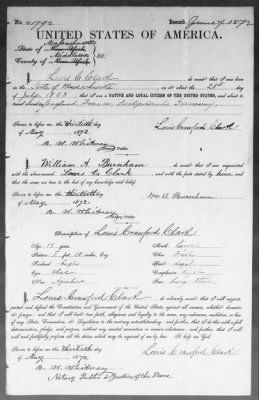 No. 21792 Issued June 4 1872
UNITED STATES OF AMERICA.
State of Massachusetts
County of Middlesex } ss:
I, Louis C. Clark do swear that I was born in
the State of Massachusetts on the 28th day
of July 1853; that I am a NATIVE AND LOYAL CITIZEN OF THE UNITED STATES, and about to
travel England, France, Switzerland, Germany
Sworn to before me, this thirtieth day
of May 1872 Louis Crawford Clark
B. W. Whitney
Notary Public
I, William A. Burnham do swear that I am acquainted
with the above-named Louis C. Clark and that the facts stated by him, and
that the same are true to the best of my knowledge and belief.
Sworn to before me, this thirtieth day
of May 1872. Wm A Burnham
B. W. Whitney
Notary Public
Description of Louis Crawford Clark
Age 18 years
Stature 5 ft 10 inches, Eng.
Forehead High
Eyes Blue
Nose
Mouth
Chin
Hair Light
Complexion Light
Face
I, Louis Crawford Clark do solemnly swear that I will support,
protect and defend the Constitution and Government of the United States against all enemies, whether domestic
or foreign; and that I will bear true faith, allegiance and loyalty to the same, any ordinance, resolution, or law
of any State, Convention, or Legislature to the contrary notwithstanding; and further, that I do this with a full
determination, pledge, and purpose, without any mental reservation or evasion whatsoever; and further, that I will
well and faithfully perform all the duties which may be required of me by law. So help me God.
Sworn to before me, this thirtieth day
of May 1872 Louis Crawford Clark
B. W. Whitney
Notary Public & Justice of the Peace